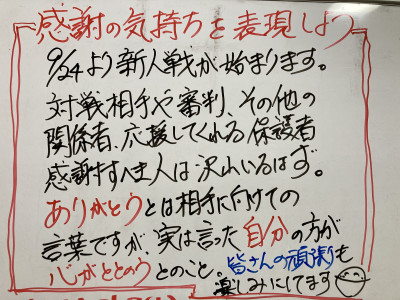 感謝の気持ちを表現しよう
9/24より新人戦が始まります。
対戦相手や審判、その他の
関係者、応援してくれる保護者
感謝すべき人は沢山いるはず。
ありがとうとは相手に向けての
言葉ですが、実は言った自分の方が
心がととのうとのこと。皆さんの頑張りも
楽しみにしてます